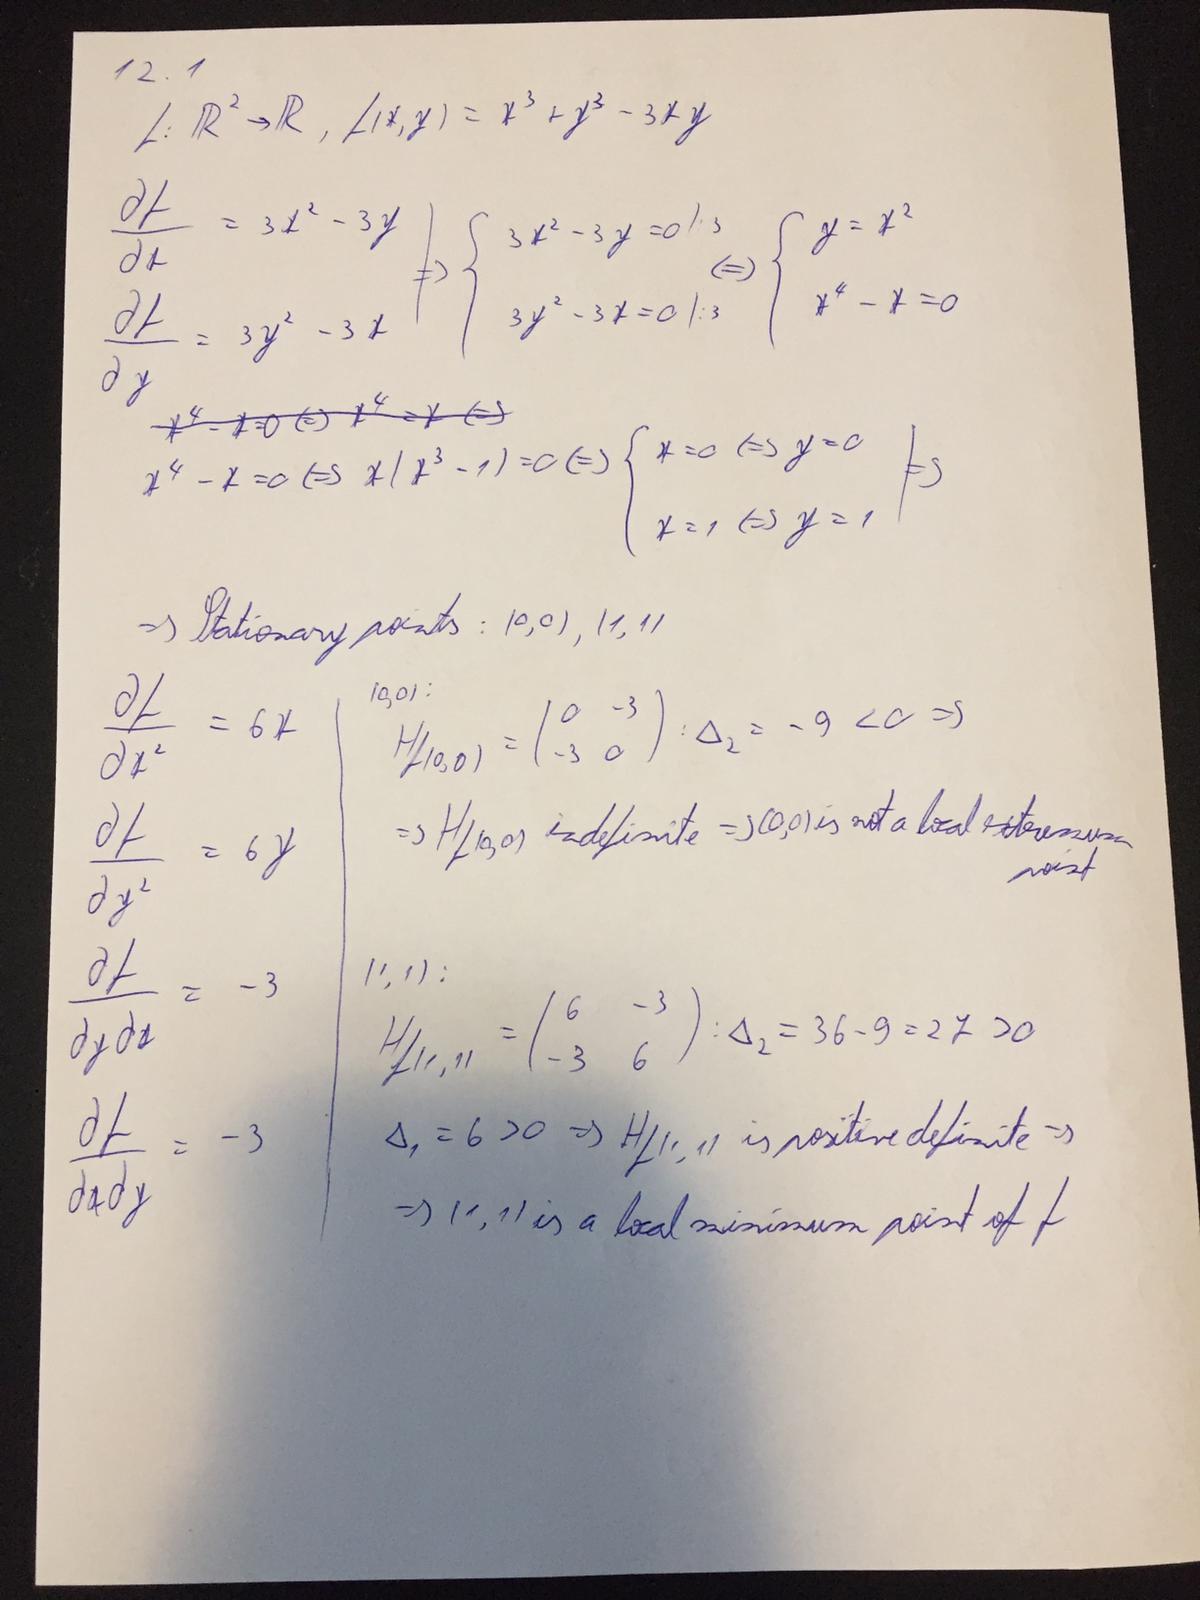 12.1
f: ℝ² → ℝ, f(x,y) = x³ + y³ - 3xy
∂f/∂x = 3x² - 3y | => { 3x² - 3y = 0 |:3 (=) { y = x²
∂f/∂y = 3y² - 3x | { 3y² - 3x = 0 |:3 { x⁴ - x = 0
x⁴ - x = 0 (=) x⁴ = x (=)
x⁴ - x = 0 (=) x(x³ - 1) = 0 (=) { x = 0 (=) y = 0 | =>
{ x = 1 (=) y = 1
=> Stationary points: (0,0), (1,1)
∂f/∂x² = 6x
∂f/∂y² = 6y
∂f/∂y∂x = -3
∂f/∂x∂y = -3
(0,0):
Hf(0,0) = (0 -3; -3 0) : Δ₂ = -9 < 0 =>
=> Hf(0,0) indefinite => (0,0) is not a local extremum
point
(1,1):
Hf(1,1) = (6 -3; -3 6) : Δ₂ = 36 - 9 = 27 > 0
Δ₁ = 6 > 0 => Hf(1,1) is positive definite =>
=> (1,1) is a local minimum point of f